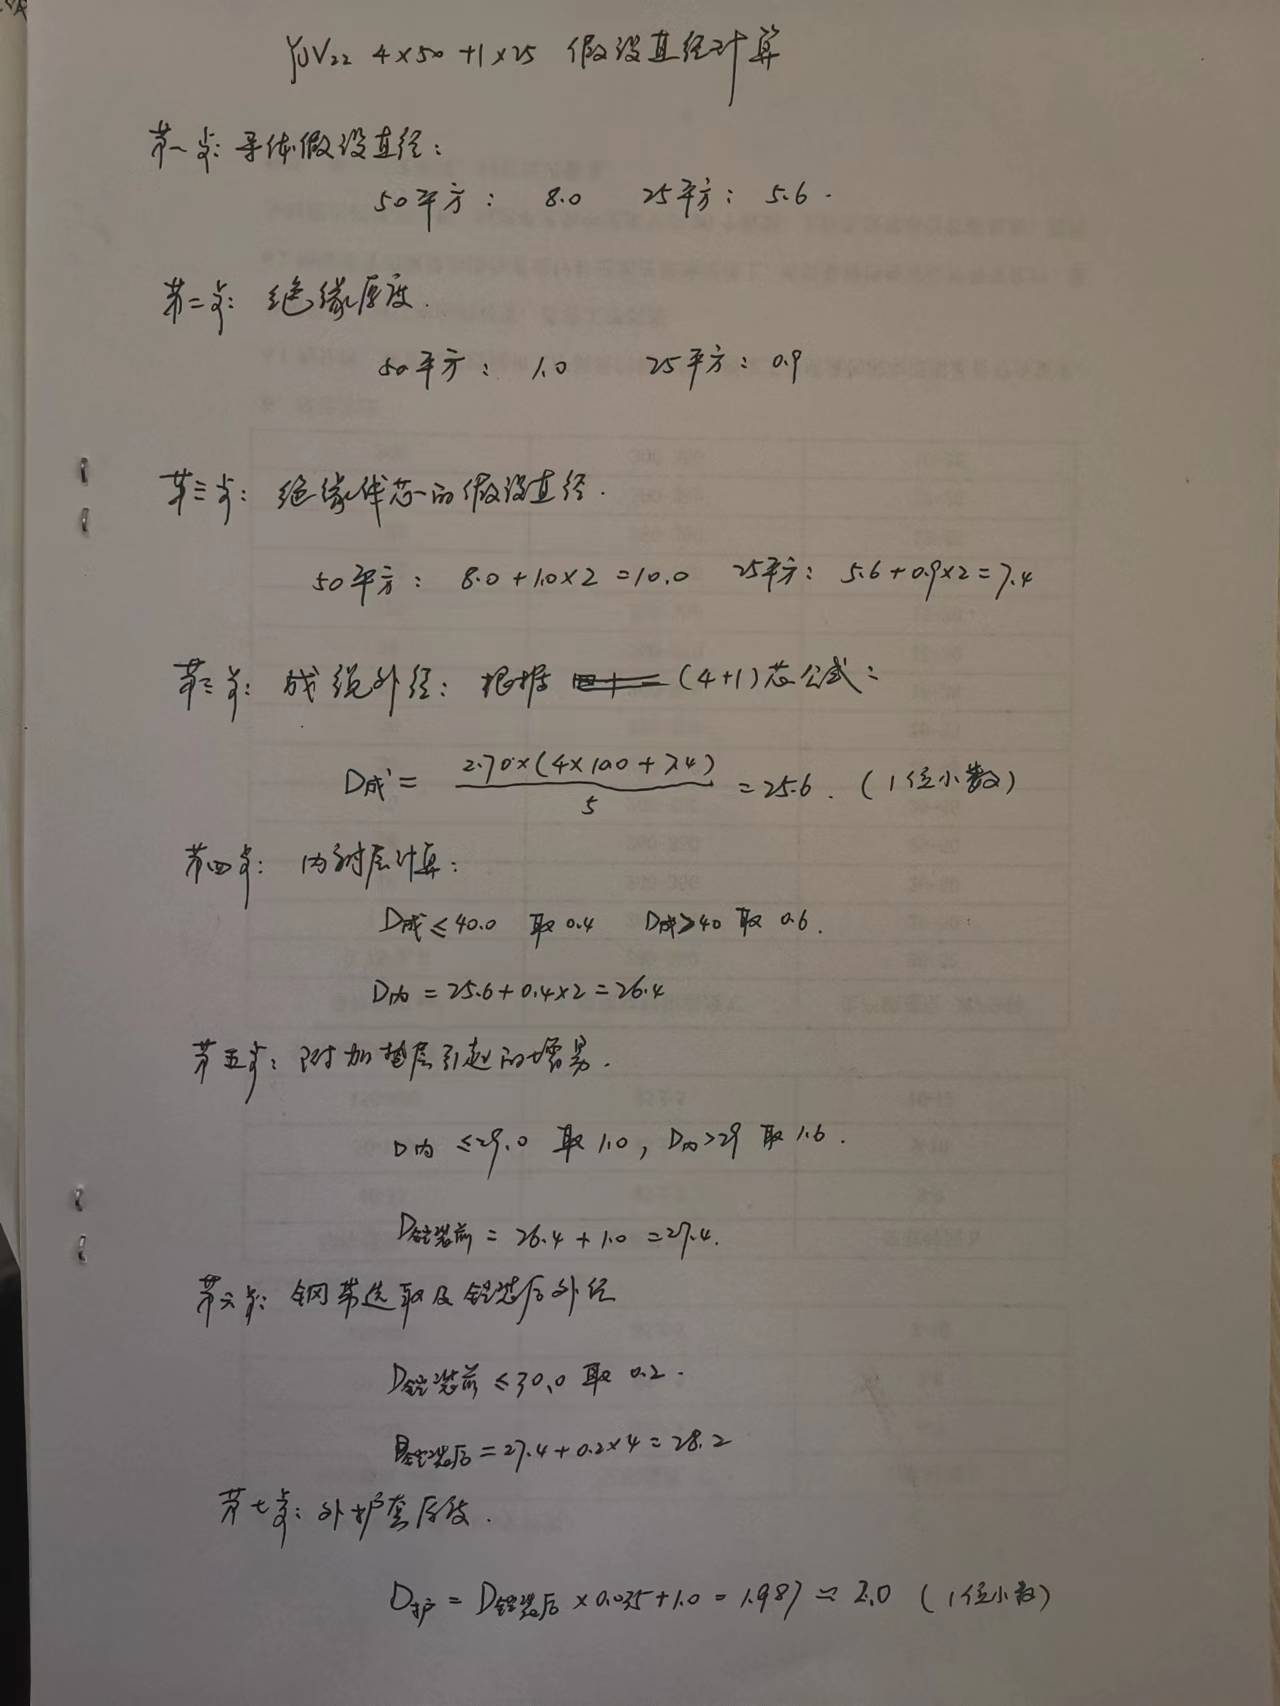 YJV22 4×50+1×25 假设直径计算
第一步: 导体假设直径:
50平方: 8.0 25平方: 5.6.
第二步: 绝缘厚度.
50平方: 1.0 25平方: 0.9
第三步: 绝缘线芯的假设直径.
50平方: 8.0+1.0×2=10.0 25平方: 5.6+0.9×2=7.4
第三步: 成缆外径: 根据 (4+1)芯公式:
D成 = 2.70×(4×10.0+7.4) / 5 = 25.6. (1位小数)
第四步: 内衬层计算:
D成≤40.0 取0.4 D成>40 取 0.6.
D内 = 25.6+0.4×2=26.4
第五步: 附加垫层引起的增易.
D内 ≤29.0 取 1.0, D内>29 取 1.6.
D铠装前 = 26.4+1.0=27.4.
第六步: 钢带选取及铠装后外径
D铠装前 ≤30.0 取 0.2.
D铠装后=27.4+0.2×4=28.2
第七步: 外护套厚度.
D护 = D铠装后 ×0.035+1.0=1.987≈2.0 (1位小数)